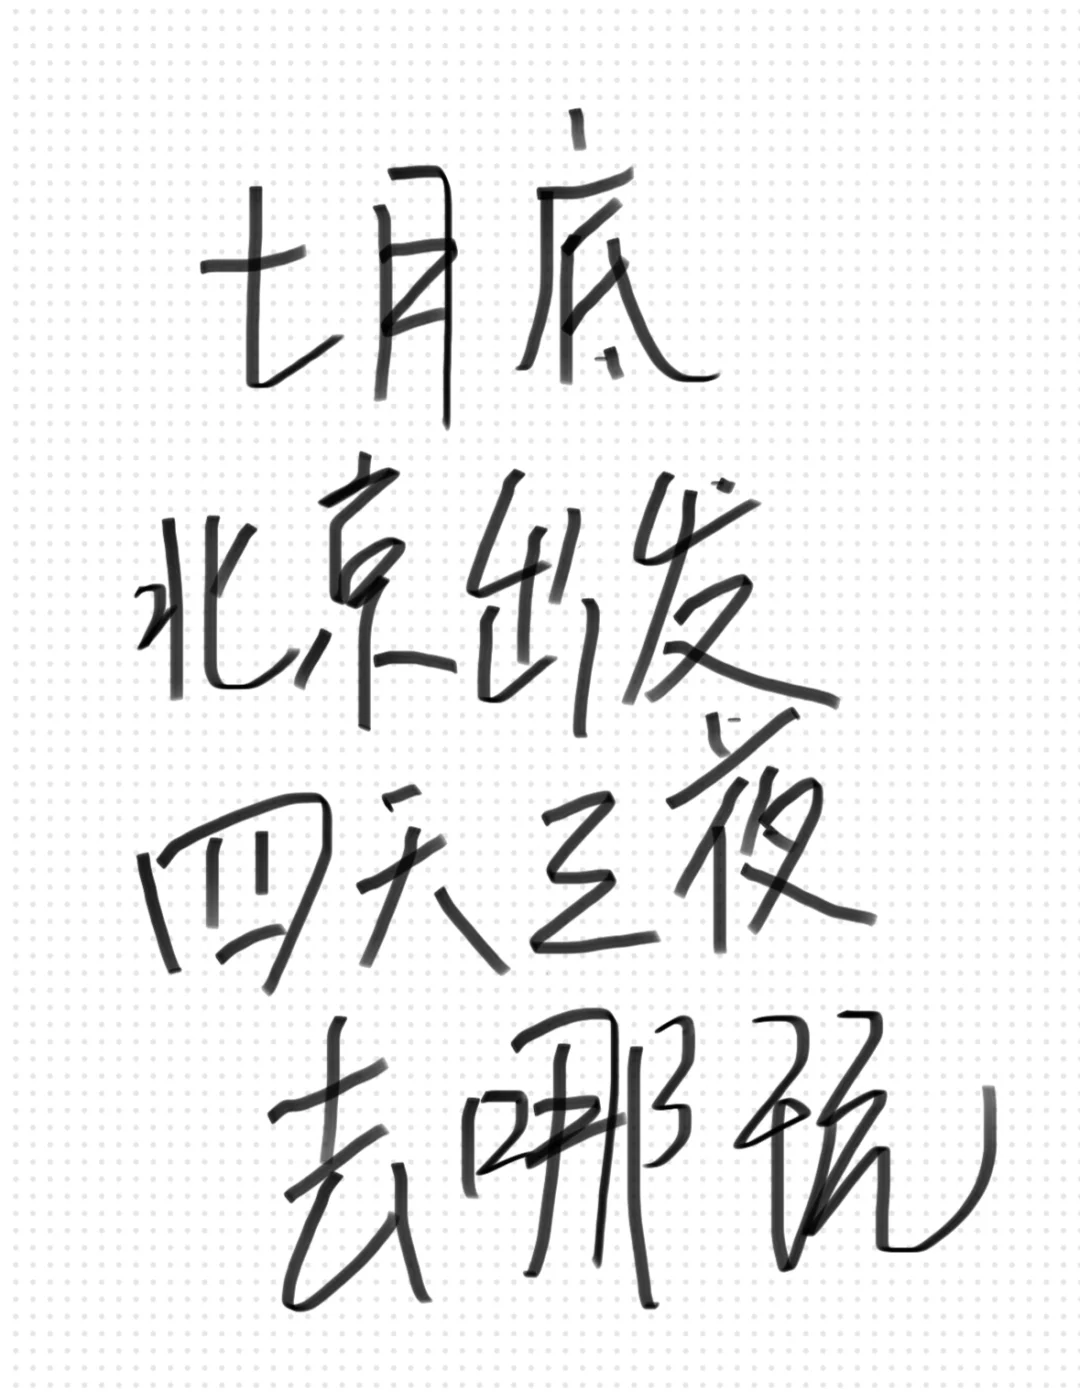 七月底
北京出发
四天三夜
去哪玩